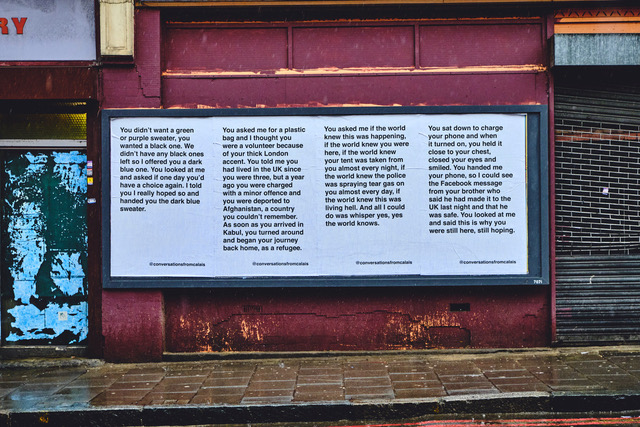 RY
You didn't want a green
or purple sweater, you
wanted a black one. We
didn't have any black ones
left so I offered you a dark
blue one. You looked at me
and asked if one day you'd
have a choice again. I told
you I really hoped so and
handed you the dark blue
sweater.
@conversationsfromcalais
You asked me for a plastic
bag and I thought you
were a volunteer because
of your thick London
accent. You told me you
had lived in the UK since
you were three, but a year
ago you were charged
with a minor offence and
you were deported to
Afghanistan, a country
you couldn't remember.
As soon as you arrived in
Kabul, you turned around
and began your journey
back home, as a refugee.
@conversationsfromcalais
You asked me if the world
knew this was happening,
if the world knew you were
here, if the world knew
your tent was taken from
you almost every night, if
the world knew the police
was spraying tear gas on
you almost every day, if
the world knew this was
living hell. And all I could
do was whisper yes, yes
the world knows.
@conversationsfromcalais
You sat down to charge
your phone and when
it turned on, you held it
close to your chest,
closed your eyes and
smiled. You handed me
your phone, so I could see
the Facebook message
from your brother who
said he had made it to the
UK last night and that he
was safe. You looked at me
and said this is why you
were still here, still hoping.
@conversationsfromcalais